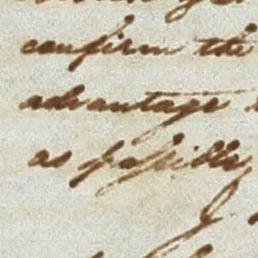 confirm the
advantage
as possible
I